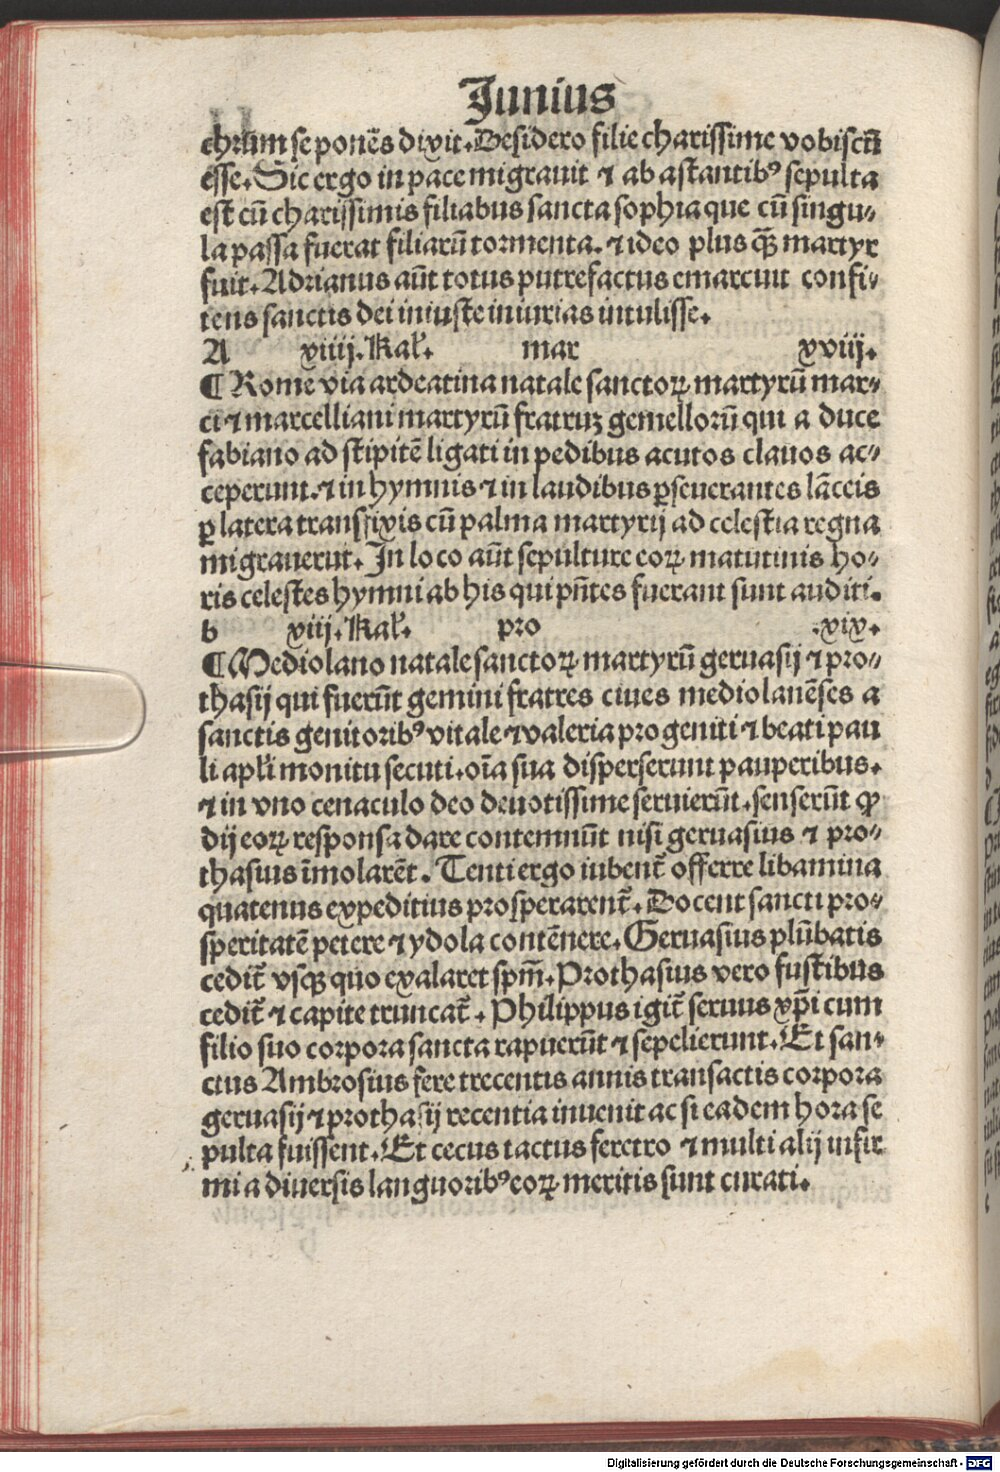 Junius
chrum se ponēs dixit. Desidero filie charissime vobiscū
esse. Sic ergo in pace migrauit ⁊ ab astantibꝰ sepulta
est cū charissimis filiabus sancta sophia que cū singu⸗
la passa fuerat filiarū tormenta. ⁊ ideo plus qꝫ̄ martyr
fuit. Adrianus aūt totus putrefactus emarcuit confi⸗
tens sanctis dei iniuste iniurias intulisse.
A xiiij. Kal̓. mar xviij.
¶ Rome via ardeatina natale sanctoꝝ martyrū mar⸗
ci ⁊ marcelliani martyrū fratruꝫ gemellorū qui a duce
fabiano ad stipitē ligati in pedibus acutos clauos ac⸗
ceperunt. ⁊ in hymnis ⁊ in laudibus ꝑseuerantes lāceis
ꝑ latera transfixis cū palma martyrij ad celestia regna
migrauerūt. In loco aūt sepulture eoꝝ matutinis ho⸗
ris celestes hymni ab his qui pn̄tes fuerant sunt auditi.
b xiij. Kal̓. pro .xix.
¶ Mediolano natale sanctoꝝ martyrū geruasij ⁊ pro⸗
thasij qui fuerūt gemini fratres ciues mediolanēses a
sanctis genitoribꝰ vitale ⁊ valeria progeniti ⁊ beati pau
li apl̓i monitu secuti. oīa sua disperserunt pauperibus.
⁊ in vno cenaculo deo deuotissime seruierūt. senserūt ꝙ
dij eoꝝ responsa dare contemnūt nisi geruasius ⁊ pro⸗
thasius īmolarēt. Tenti ergo iubent̄ offerre libamina
quatenus expeditius prosperarent̄. Docent sancti pro⸗
speritatē petere ⁊ ydola contēnere. Geruasius plūbatis
cedit̄ vsqꝫ quo exalaret spm̄. Prothasius vero fustibus
cedit̄ ⁊ capite truncat̄. Philippus igit̄ seruus xp̄i cum
filio suo corpora sancta rapuerūt ⁊ sepelierunt. Et san⸗
ctus Ambrosius fere trecentis annis transactis corpora
geruasij ⁊ prothasij recentia inuenit ac si eadem hora se
pulta fuissent. Et cecus tactus feretro ⁊ multi alij infir
mi a diuersis languoribꝰ eoꝝ meritis sunt curati.
Digitalisierung gefördert durch die Deutsche Forschungsgemeinschaft - DFG